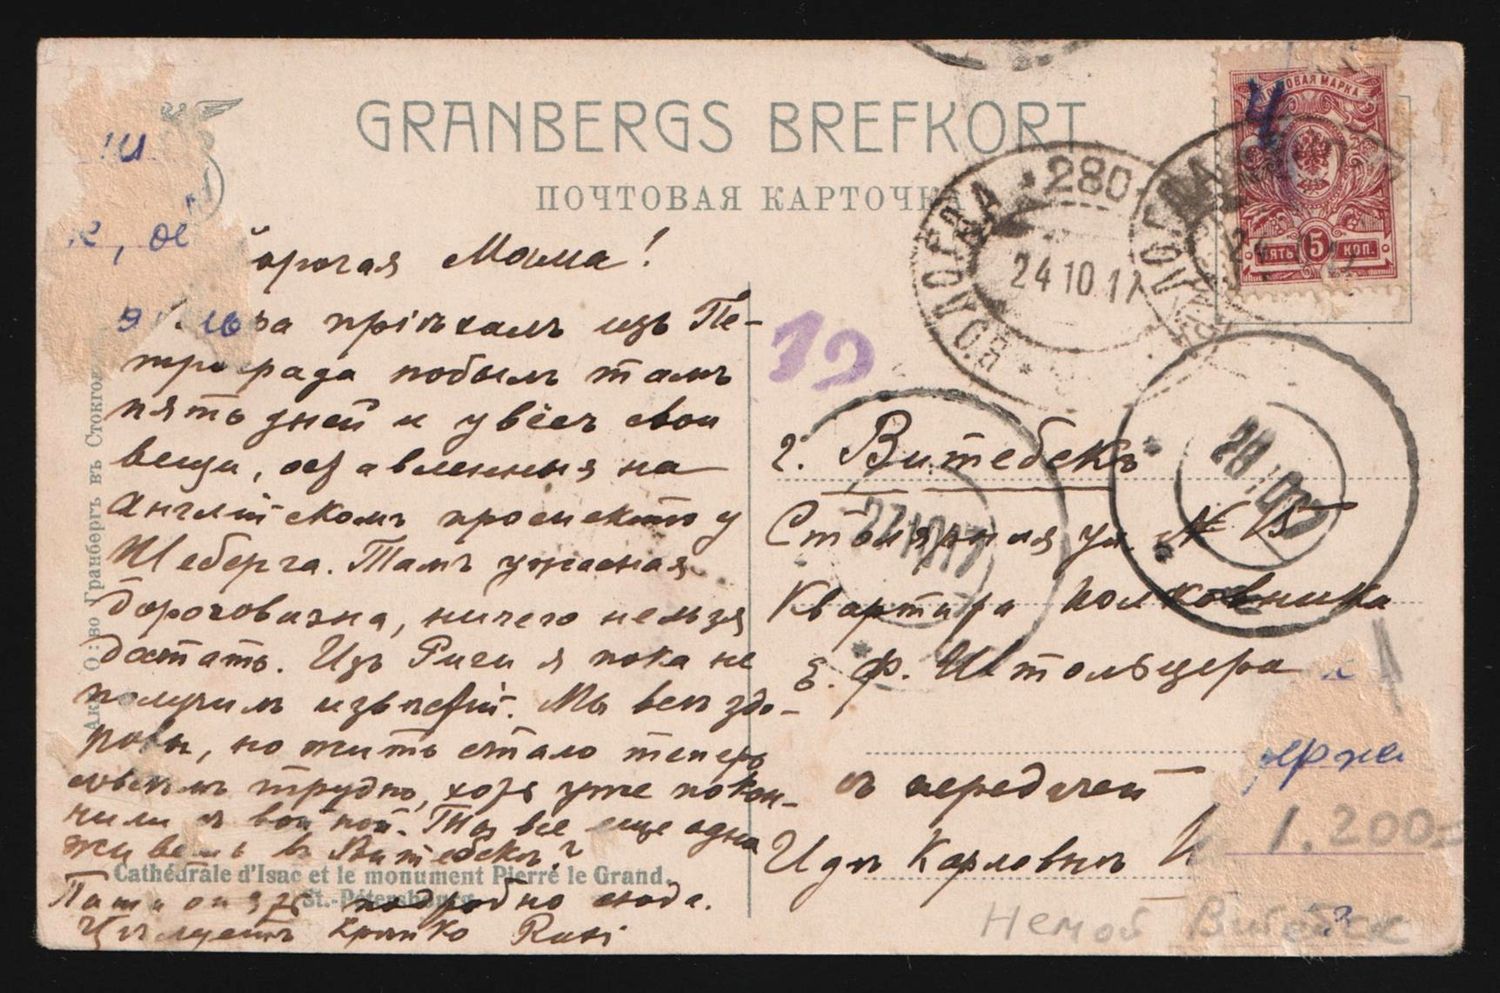 GRANBERGS BREFKORT
ПОЧТОВАЯ КАРТОЧКА
ПОЧТОВАЯ МАРКА
4
ПЯТЬ 5 КОП.
ВОЛОГДА * 280
24 10 17
19
27 10 17
28 10
Ак. О:во Гранбергъ въ Стокгол
орогая Мама!
вчера пріѣхалъ изъ Пе-
трограда побылъ тамъ
пять дней и увёзъ свои
вещи, оставленныя на
Англійскомъ проспектѣ у
Шеберга. Тамъ ужасная
дороговизна, ничего нельзя
достать. Изъ Риги я пока не
получилъ извѣстій. Мы всѣ здо-
ровы, но жить стало теперь
трудно, хотя уже покон-
чили съ войной. Ты все еще одна
живешь въ Витебскѣ?
Cathédrale d'Isac et le monument Pierre le Grand.
St.-Pétersbourg
подробно сюда.
Цѣлуетъ крѣпко
г. Витебскъ
Столярная ул. № 15
Квартира полковника
Е. Ф. Штольцера
съ передачей
Идѣ Карловнѣ
ерже
1.200=
Немой Витебск